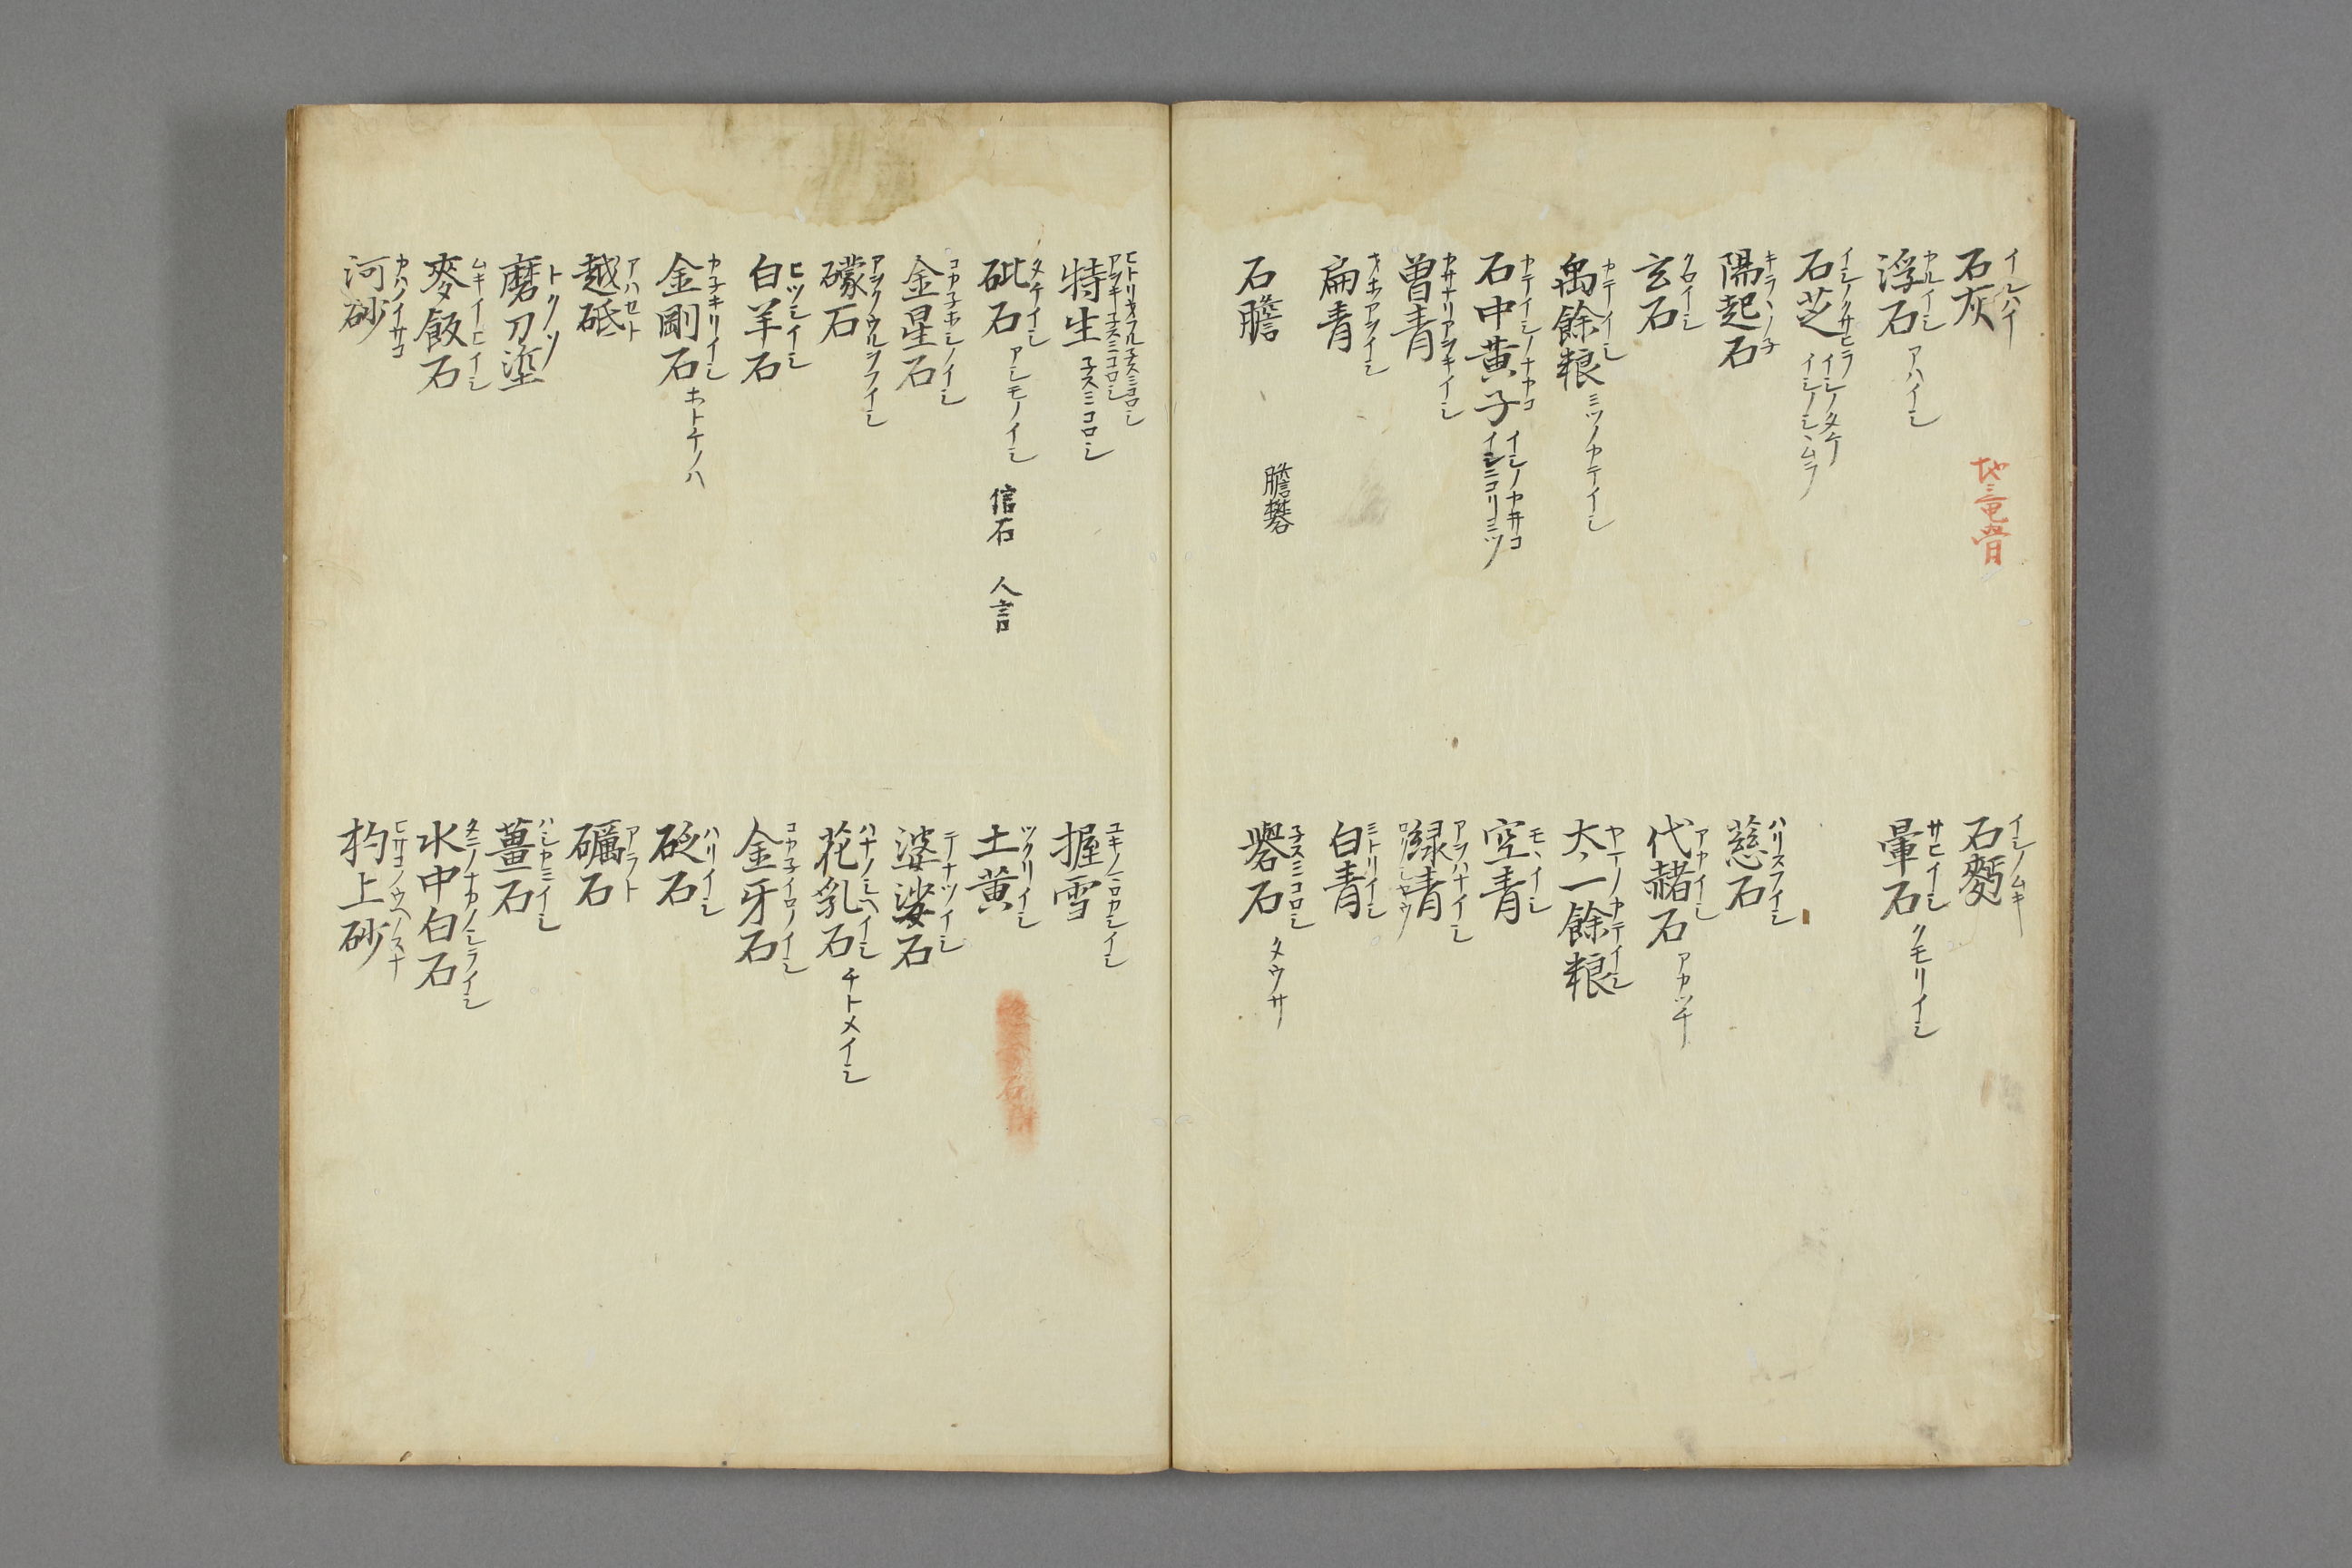 石灰 イシハイ
地竜骨
浮石 カルイシ アハイシ
石芝 イシノクサヒラ イシノタケ イシノシヽムラ
陽起石 キラヽノ子
玄石 クロイシ
禹餘粮 カテイイシ ミツノカテイシ
石中黄子 カテイシノナカコ イシノナカコ イシニコリミツ
曽青 カサナリアヲキイシ
扁青 オホアヲイシ
石膽 膽礬
石麪 イシノムキ
暈石 サヒイシ クモリイシ
慈石 ハリスフイシ
代赭石 アカイシ アカツチ
太一餘粮 ヤマノカテイシ
空青 モヽイシ
緑青 アヲハナイシ
白青 ミトリイシ
礜石 子スミコロシ タウサ
特生 子スミコロシ
砒石 アシモノイシ 信石 人言
金星石 コカ子ホシノイシ
礞石 アヲクウルヲフイシ
白羊石 ヒツシイシ
金剛石 カ子キリイシ ホトケノハ
越砥 アハセト
磨刀垽 トクソ
麥飯石 ムキイヒイシ
河砂 カハノイサコ
握雪 ユキノイロカシイシ
土黄 ツクリイシ
婆娑石 テナツイシ
花乳石 ハナノミヘイシ チトメイシ
金牙石 コカ子イロノイシ
砭石 ハリイシ
礪石 アラト
薑石 ハシカミイシ
水中白石 タニノナカノシライシ
杓上砂 ヒサコノウヘノスナ